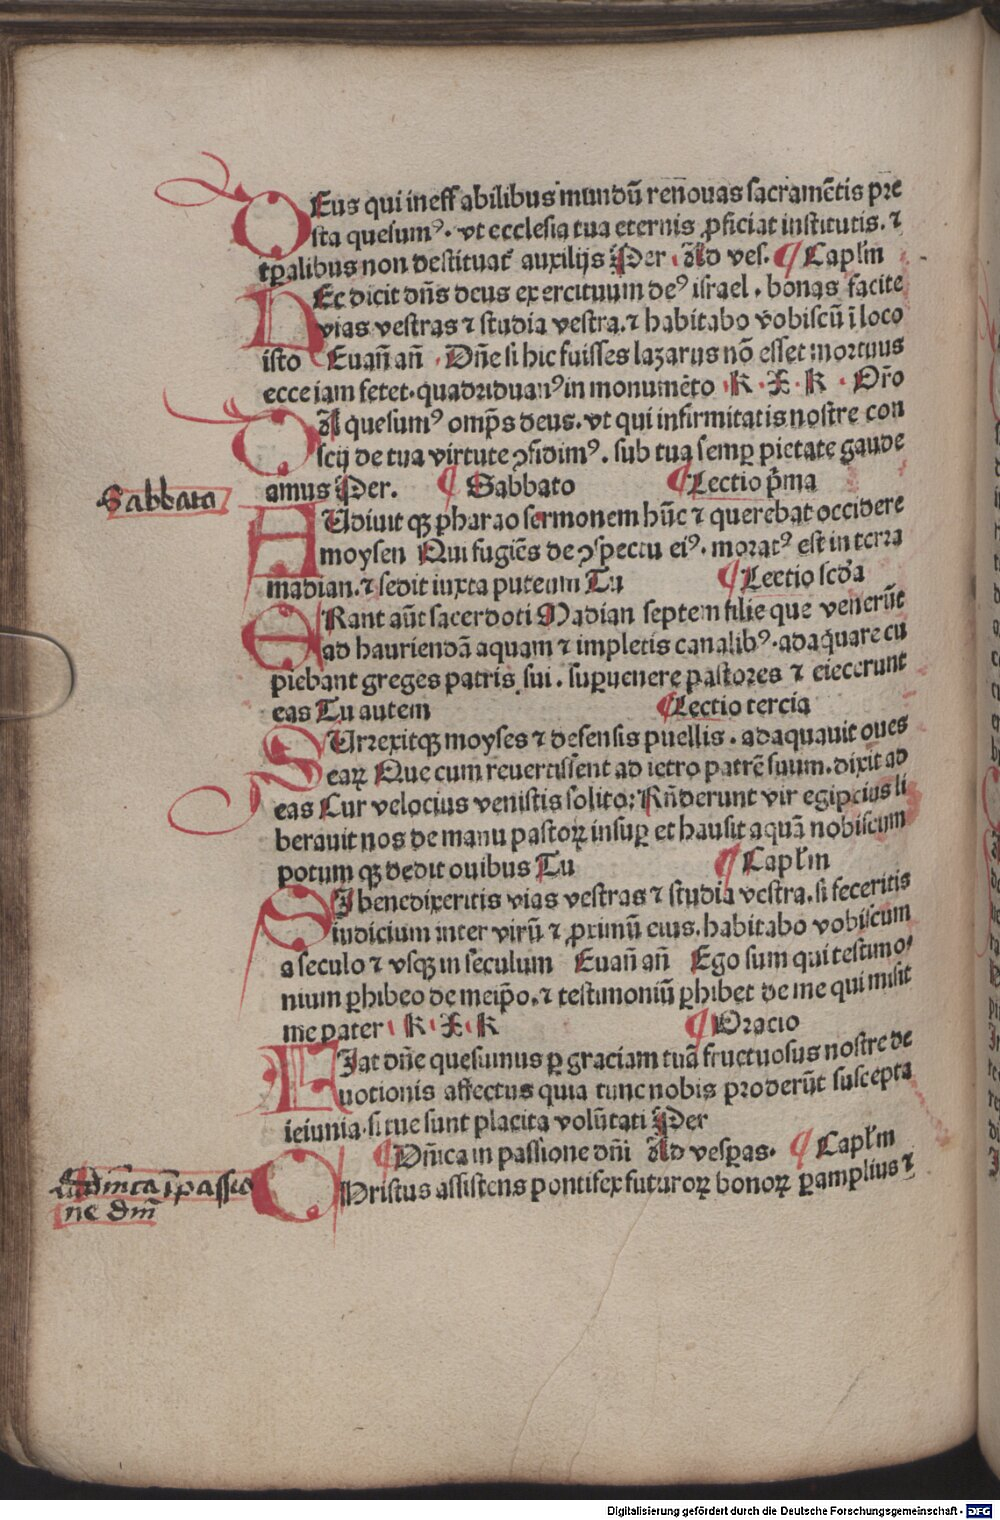 DEus qui ineffabilibus mundū renouas sacramētis pre
sta quesumꝰ. vt ecclesia tua eternis ꝓficiat institutis. ⁊
tꝑalibus non destituat̉ auxilijs Per Ad ves. ¶ Capl'm
HEc dicit dn̄s deus exercituum deꝰ israel. bonas facite
vias vestras ⁊ studia vestra. ⁊ habitabo vobiscū ī loco
isto Euan̄ an̄ Dn̄e si hic fuisses lazarus nō esset mortuus
ecce iam fetet. quadriduanꝰ in monumēto k. X. k Or̄o
DA quesumꝰ omp̄s deus. vt qui infirmitatis nostre con
scij de tua virtute ꝯfidimꝰ. sub tua semꝑ pietate gaude
amus Per. ¶ Sabbato ¶ Lectio p̄ma
Sabbata
AUdiuit qꝫ pharao sermonem hūc ⁊ querebat occidere
moysen Qui fugiēs de ꝯspectu eiꝰ. moratꝰ est in terra
madian. ⁊ sedit iuxta puteum Tu ¶ Lectio scd̄a
ERant aūt sacerdoti Madian septem filie que venerūt
ad hauriendā aquam ⁊ impletis canalibꝰ. adaquare cu
piebant greges patris sui. suꝑuenere pastores ⁊ eiecerunt
eas Tu autem ¶ Lectio tercia
SUrrexitqꝫ moyses ⁊ defensis puellis. adaquauit oues
eaꝝ Que cum reuertissent ad ietro patrē suum. dixit ad
eas Cur velocius venistis solito: Rn̄derunt vir egipcius li
berauit nos de manu pastoꝝ insuꝑ et hausit aquā nobiscum
potum qꝫ dedit ouibus Tu ¶ Capl'm
SI benedixeritis vias vestras ⁊ studia vestra. si feceritis
iudicium inter virū ⁊ ꝓximū eius. habitabo vobiscum
a seculo ⁊ vsqꝫ in seculum Euan̄ an̄ Ego sum qui testimo
nium ꝑhibeo de meip̄o. ⁊ testimoniū ꝑhibet de me qui misit
me pater k. X. k ¶ Oracio
FIat dn̄e quesumus ꝑ graciam tuā fructuosus nostre de
uotionis affectus quia tunc nobis proderūt suscepta
ieiunia. si tue sunt placita volūtati Per
¶ Dn̄ica in passione dn̄i Ad vesꝑas. ¶ Capl'm
dn̄ica ī passio
ne dn̄i
CHristus assistens pontifex futuroꝝ bonoꝝ ꝑ amplius ⁊
Digitalisierung gefördert durch die Deutsche Forschungsgemeinschaft - DFG